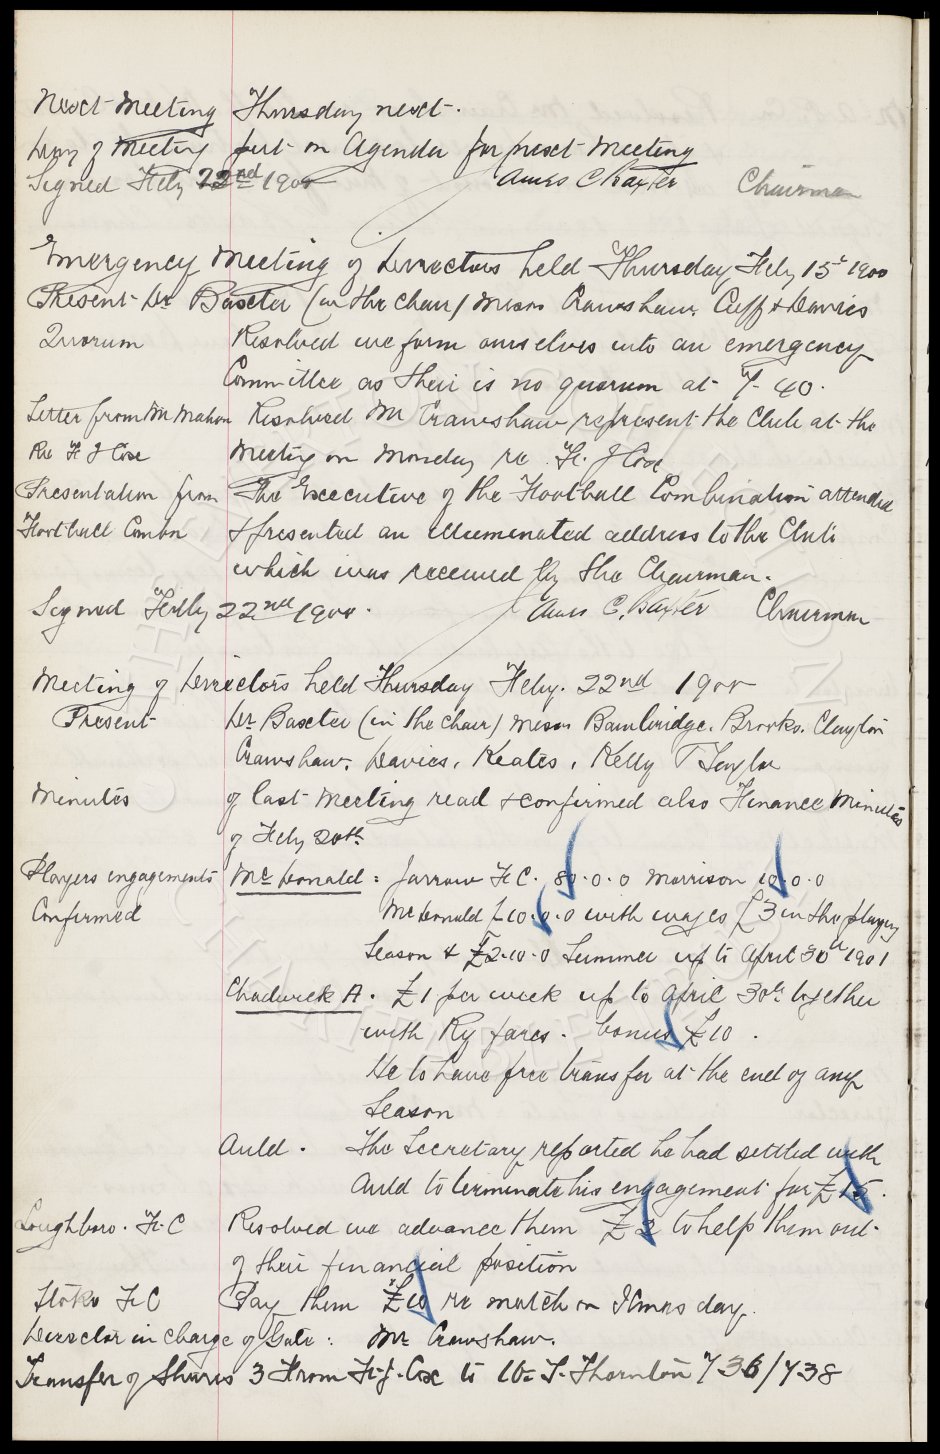 Next Meeting Thursday next.
Day of Meeting put on Agenda for next Meeting
Signed Feby 22nd 1900 James C Baxter Chairman
Emergency Meeting of Directors held Thursday Feby 15th 1900
Present Dr Baxter (in the chair) Messrs Crawshaw, Cuff & Davies
Quorum Resolved we form ourselves into an emergency
Committee as their is no quorum at 7-40.
Letter from Mr Mahon Resolved Mr Crawshaw represent the Club at the
Re F J Cox Meeting on Monday re F. J Cox
Presentation from The Executive of the Football Combination attended
Football Combn & presented an illuminated address to the Club
which was received by the Chairman.
Signed Feby 22nd 1900. James C. Baxter Chairman
Meeting of Directors held Thursday Feby. 22nd 1900
Present Dr Baxter (in the chair) Messrs Bainbridge, Brooks, Clayton
Crawshaw, Davies, Keates, Kelly T Taylor
Minutes of last Meeting read & confirmed also Finance Minutes
of Feby 20th.
Players engagements McDonald: Jarrow F.C. 80.0.0 Morrison 10.0.0
Confirmed McDonald £10.0.0 with wages £3 in the playing
Season & £2.10.0 Summer up to April 30th 1901
Chadwick A. £1 per week up to April 30th together
with Ry fares. bonus £10.
He to have free transfer at the end of any
Season
Auld. The Secretary reported he had settled with
Auld to terminate his engagement for £15.
Loughboro. F.C Resolved we advance them £2 to help them out
of their financial position
Stoke F.C Pay them £10 re match on Xmas day.
Director in charge of Gate: Mr Crawshaw.
Transfer of Shares 3 From F.J. Cox to T. Thornton 736/738